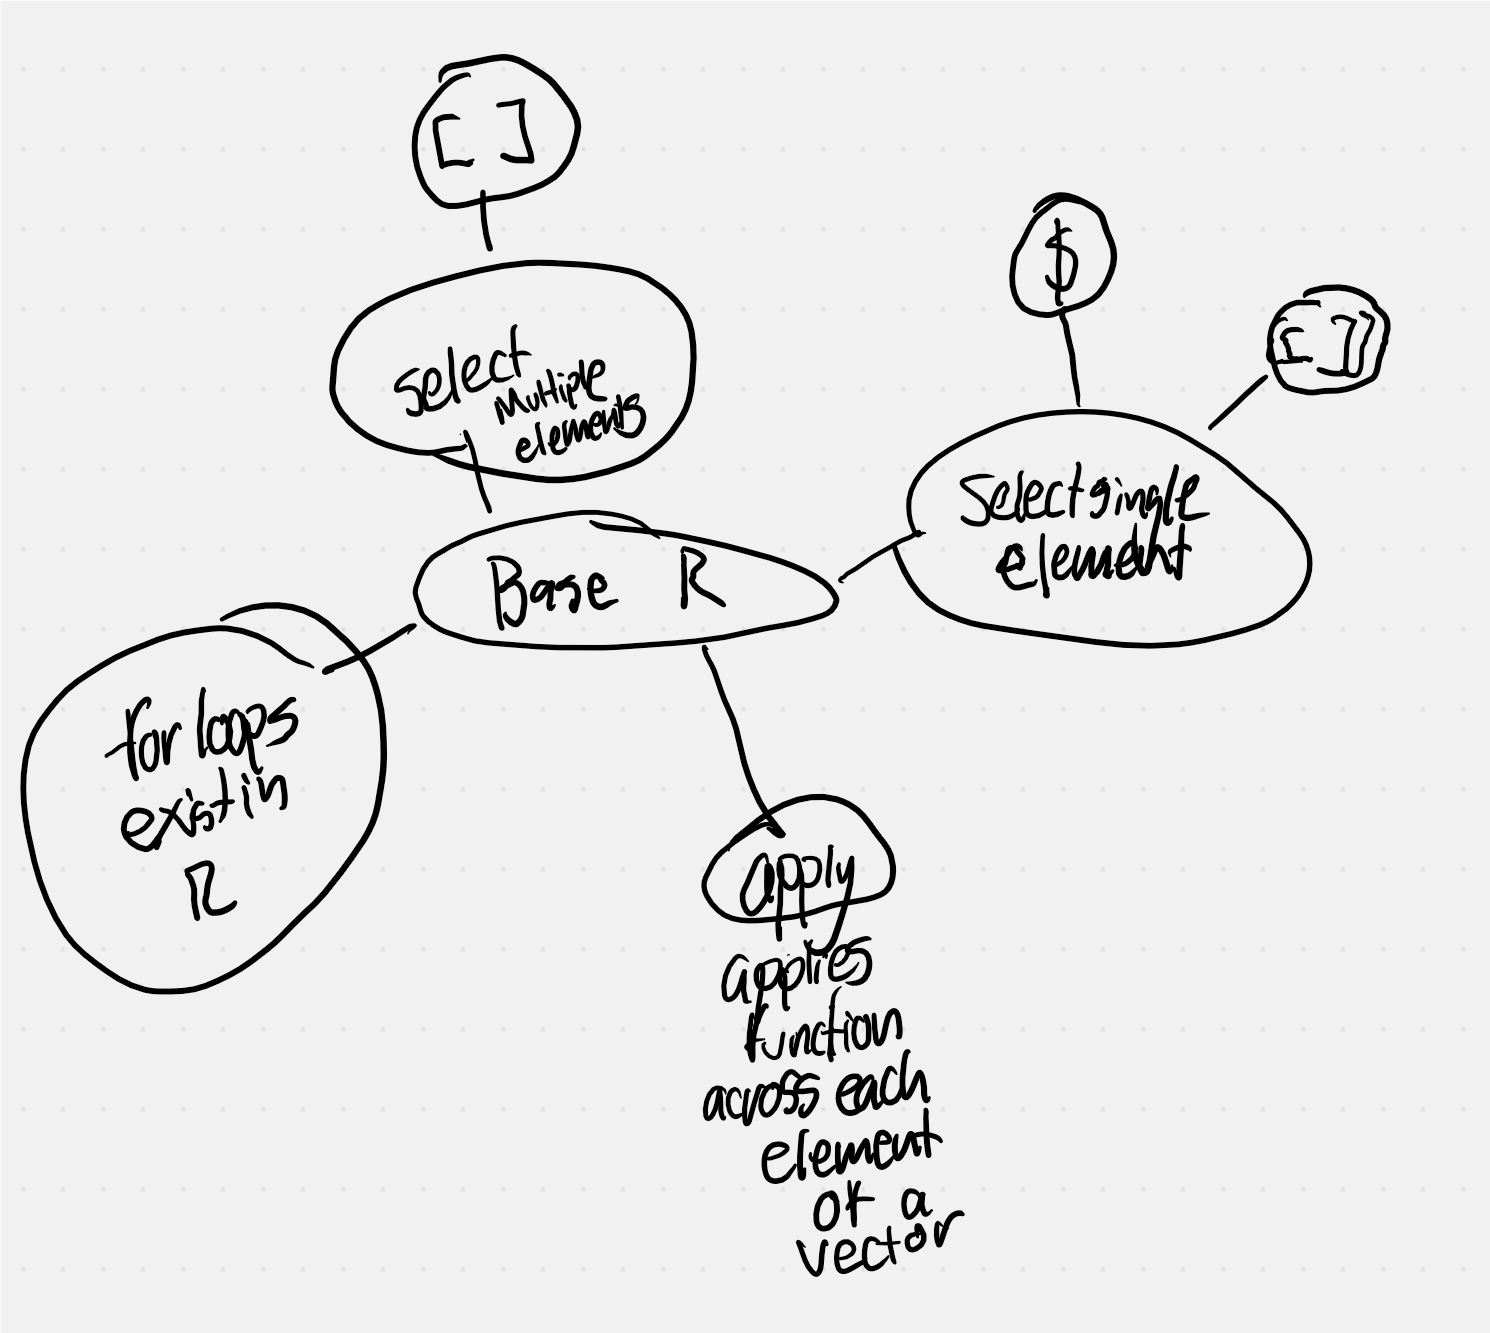 [ ]
$
[ ]]
select
Multiple
elements
Select single
element
Base R
for loops
exist in
R
apply
applies
function
across each
element
of a
vector